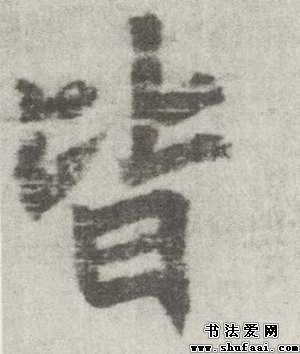 皆
书法爱网
www.shufaai.com